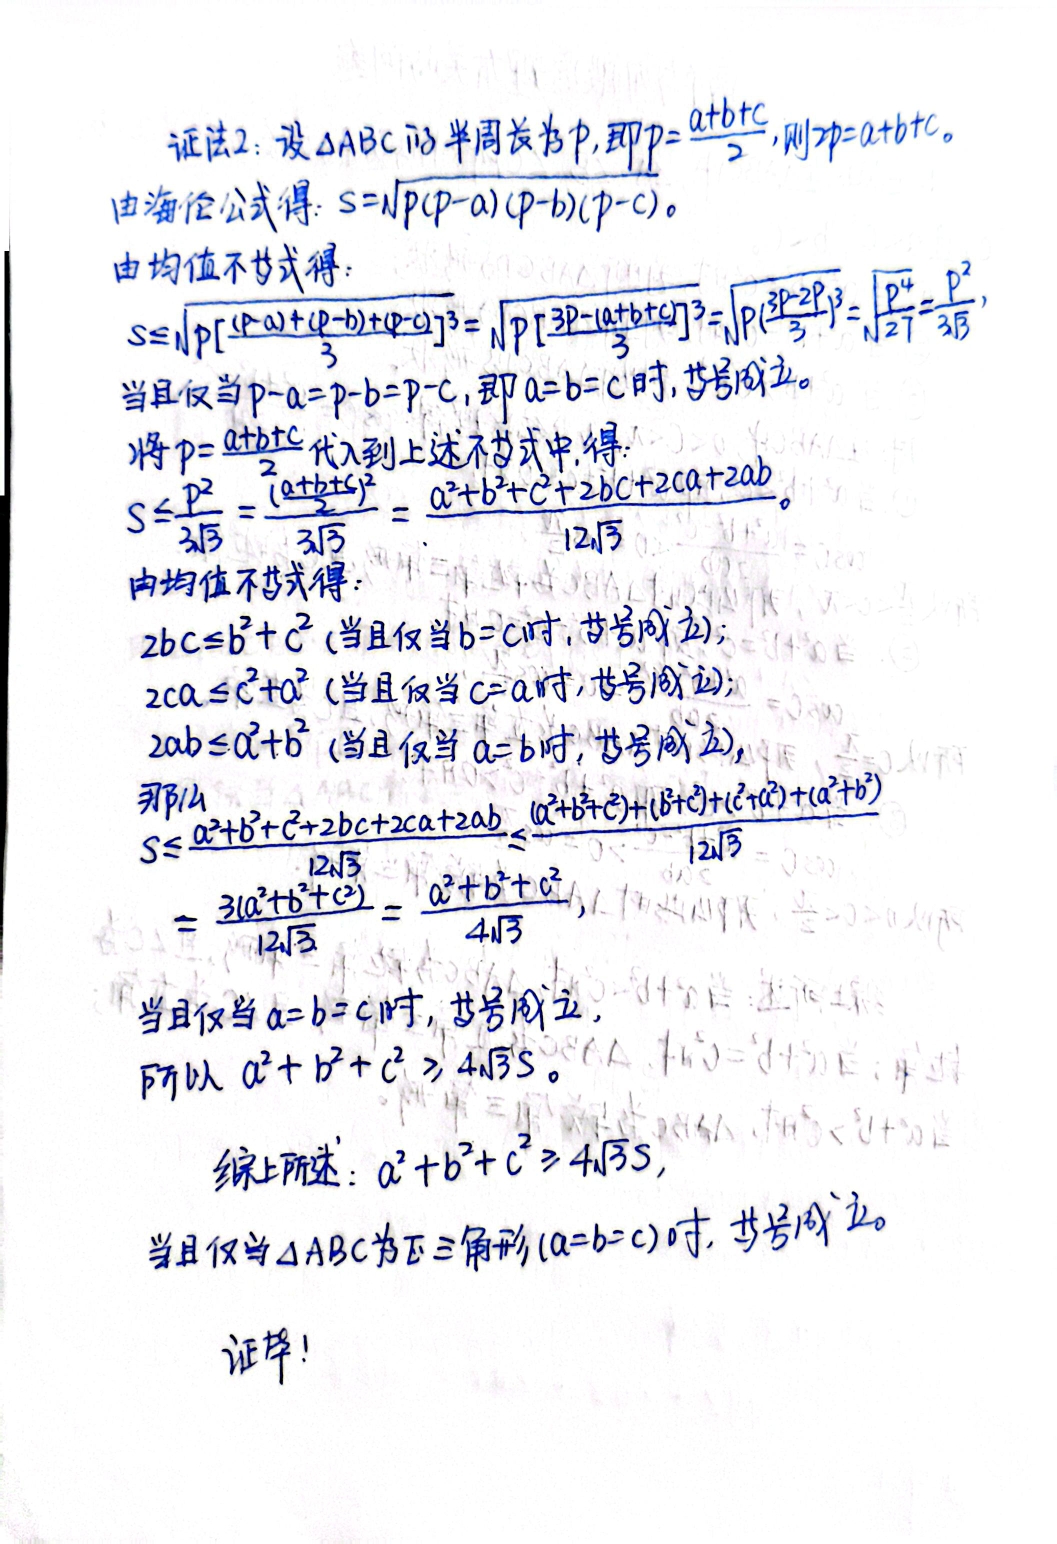 证法2：设△ABC的半周长为p，即p=\frac{a+b+c}{2}，则2p=a+b+c。
由海伦公式得：S=√p(p-a)(p-b)(p-c)。
由均值不等式得：
S≤√p[\frac{(p-a)+(p-b)+(p-c)}{3}]³=√p[\frac{3p-(a+b+c)}{3}]³=√p(\frac{3p-2p}{3})³=√\frac{p⁴}{27}=\frac{p²}{3√3}，
当且仅当p-a=p-b=p-c，即a=b=c时，等号成立。
将p=\frac{a+b+c}{2}代入到上述不等式中，得：
S≤\frac{p²}{3√3}=\frac{(\frac{a+b+c}{2})²}{3√3}=\frac{a²+b²+c²+2bc+2ca+2ab}{12√3}。
由均值不等式得：
2bc≤b²+c²（当且仅当b=c时，等号成立）；
2ca≤c²+a²（当且仅当c=a时，等号成立）；
2ab≤a²+b²（当且仅当a=b时，等号成立），
那么
S≤\frac{a²+b²+c²+2bc+2ca+2ab}{12√3}≤\frac{(a²+b²+c²)+(b²+c²)+(c²+a²)+(a²+b²)}{12√3}
=\frac{3(a²+b²+c²)}{12√3}=\frac{a²+b²+c²}{4√3}，
当且仅当a=b=c时，等号成立，
所以 a²+b²+c²≥4√3S。
综上所述：a²+b²+c²≥4√3S，
当且仅当△ABC为正三角形(a=b=c)时，等号成立。
证毕！